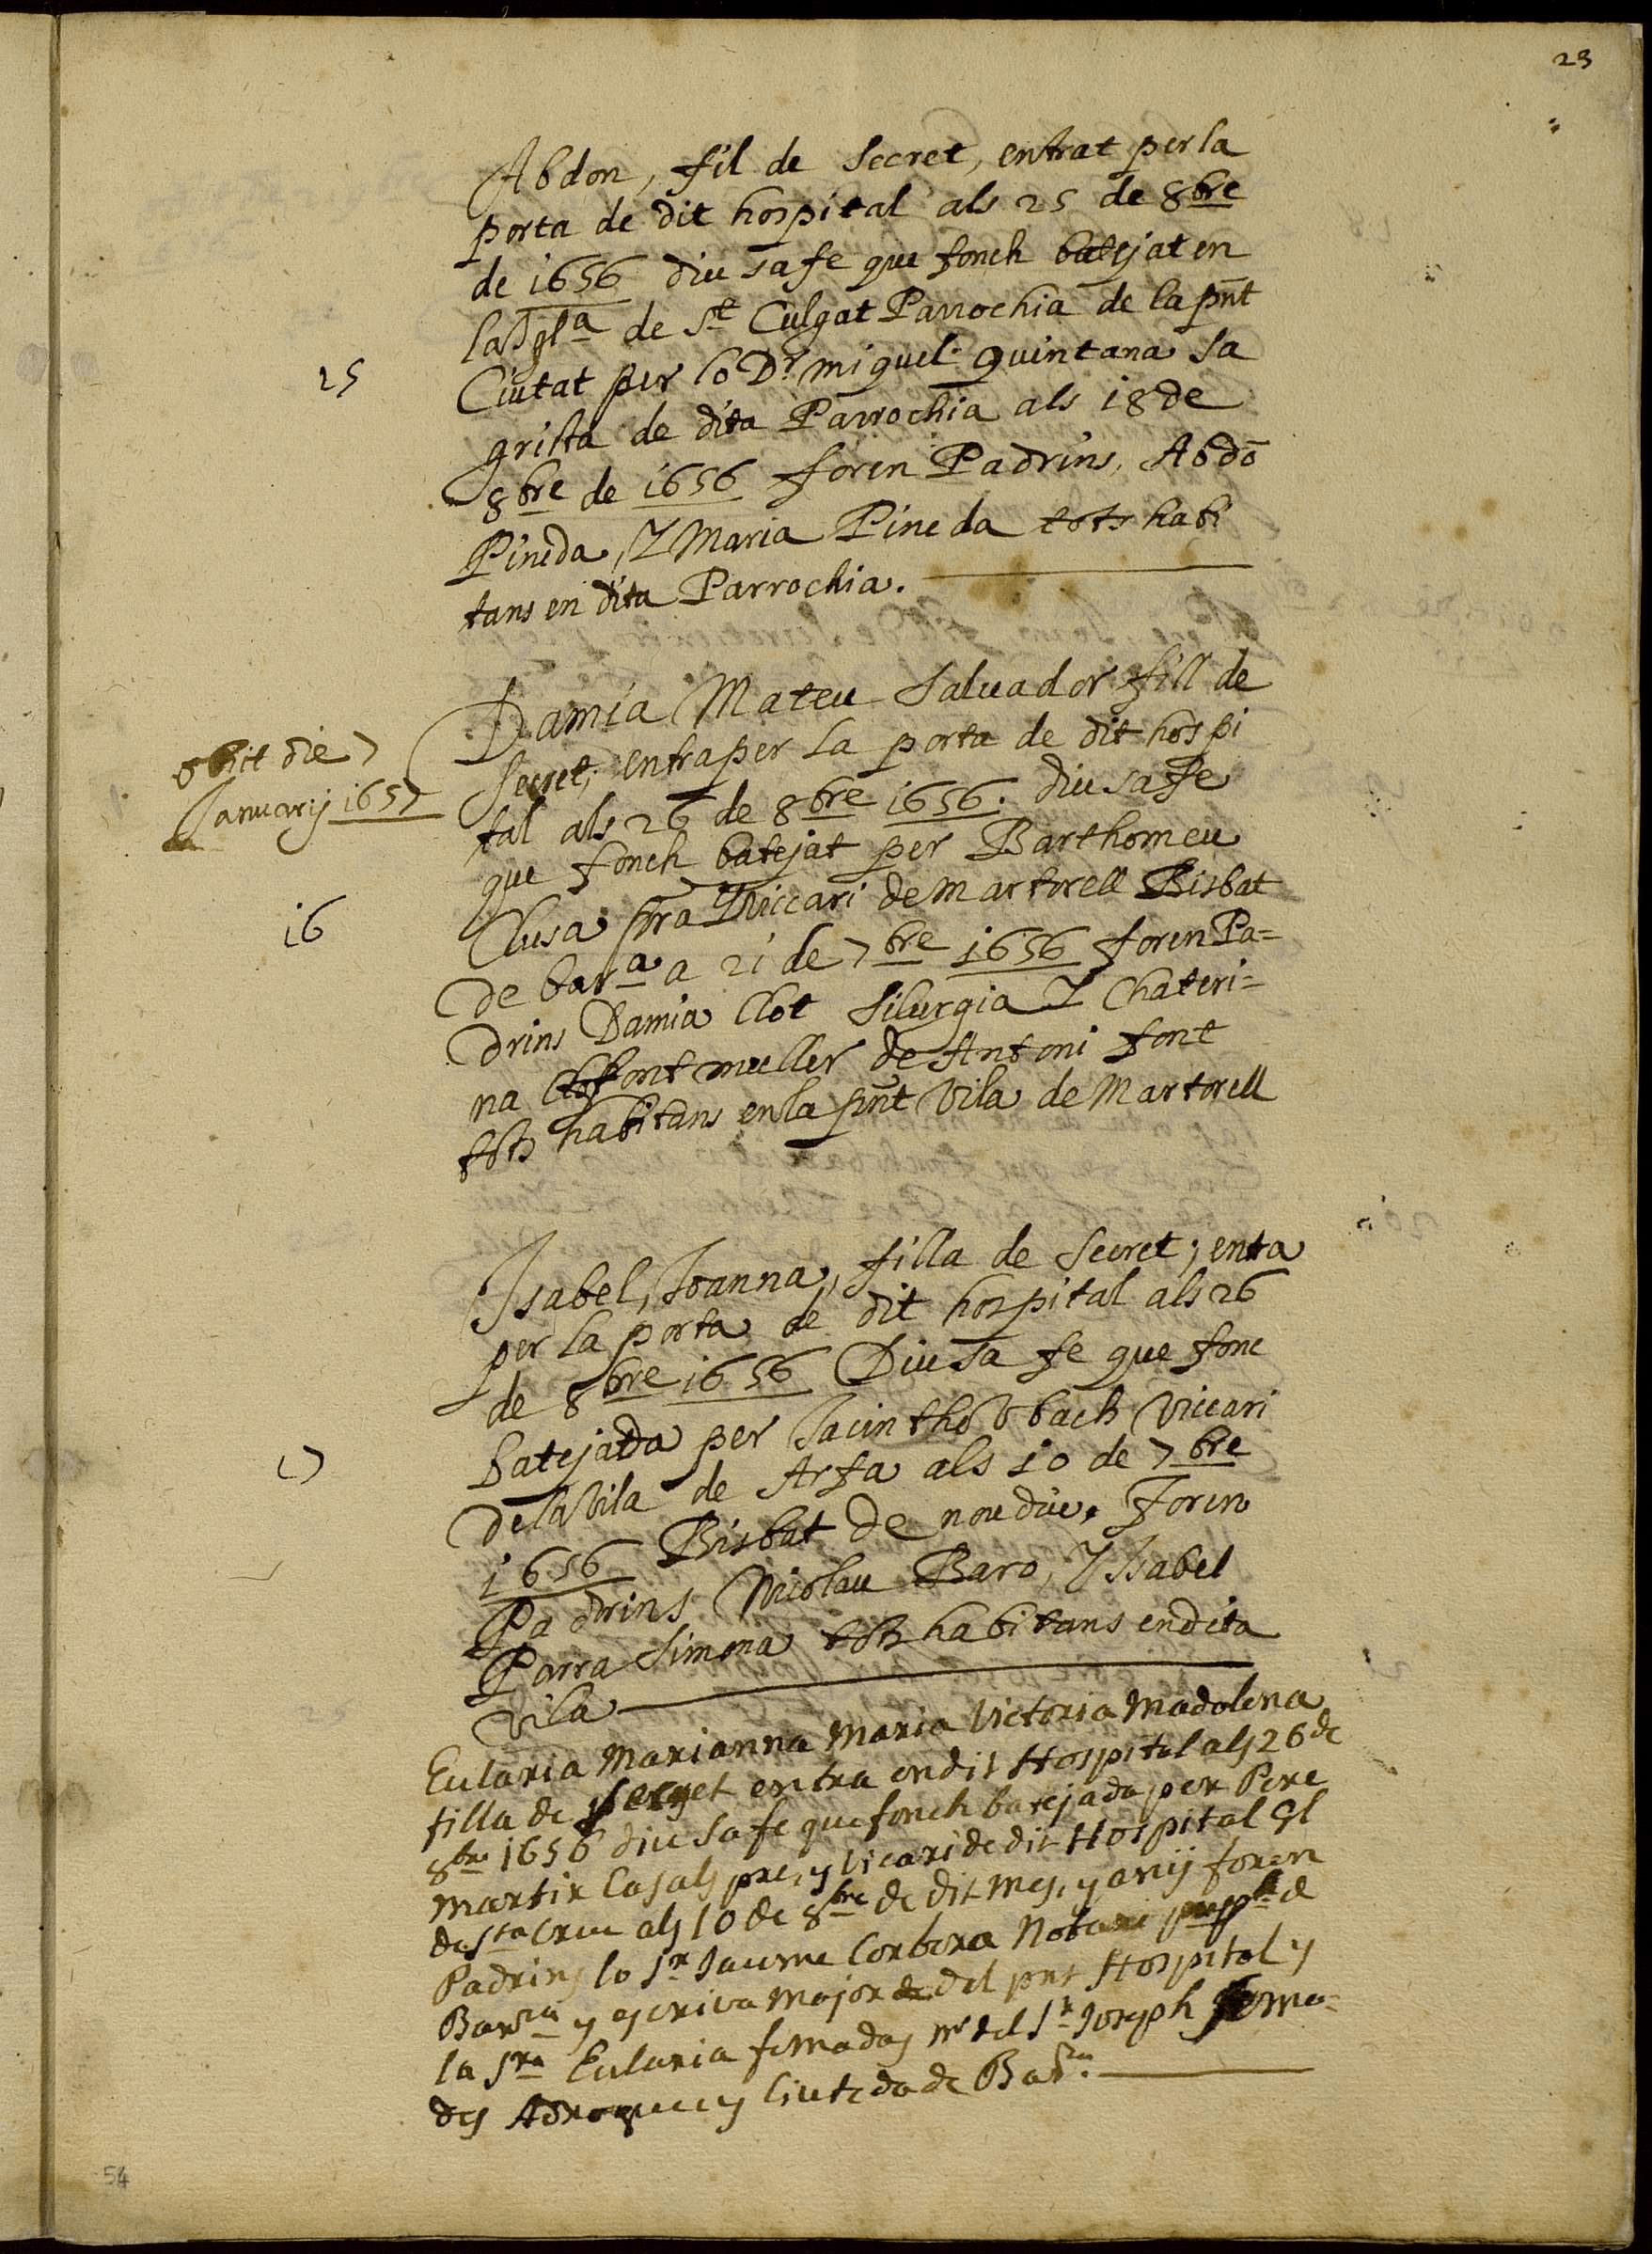 23
Abdon, fil de secret, entrat per la
porta de dit hospital als 25 de 8bre
de 1656 diu sa fe que fonch batejat en
la Iglа de St Culgat Parrochia de la pnt
25
Ciutat per lo Dr miguel Quintana sa
grista de dita Parrochia als 18 de
8bre de 1656 foren Padrins, Abdō
Pineda, Y Maria Pineda tots habi
tans en dita Parrochia.
Damia Mateu Saluador fill de
obiit die 7
Januarij 1657
secret, entra per la porta de dit hospi
tal als 26 de 8bre 1656. diu sa fe
que fonch batejat per Barthomeu
16
Clusa pra Y viccari de martorell Bisbat
De bara a 21 de 7bre 1656 foren Pa=
drins Damia Clot Silurgia Y Chateri=
na font muller de Antoni font
tots habitans en la pnt Vila de Martorell
Isabel, Joanna, filla de secret; enta
per la porta de dit hospital als 26
de 8bre 1656 Diu sa fe que fonc
batejada per Jacintho Vbach Viccari
17
De la Vila de Arfa als 10 de 7bre
1656 Bisbat De nou dic. Foren
Padrins Nicolau Baro, Y Isabel
Parra Simona tots habitans en dita
Vila
Eularia Marianna Maria Victoria Madalena
filla de secret entra en dit Hospital als 26 de
8bre 1656 diu sa fe que fonch batejada per Pere
Martir Casals pre, y Vicari de dit Hospital Gl
de Sta Creu als 10 de 8bre de dit mes, y anij foren
Padrins lo Sr Jaume Corbera Notari de
Barna y escriva major del pnt Hospital y
la Sra Eularia fomadas mr del Sr Joseph foma=
des Adroguer y Ciutada de Barna.
54